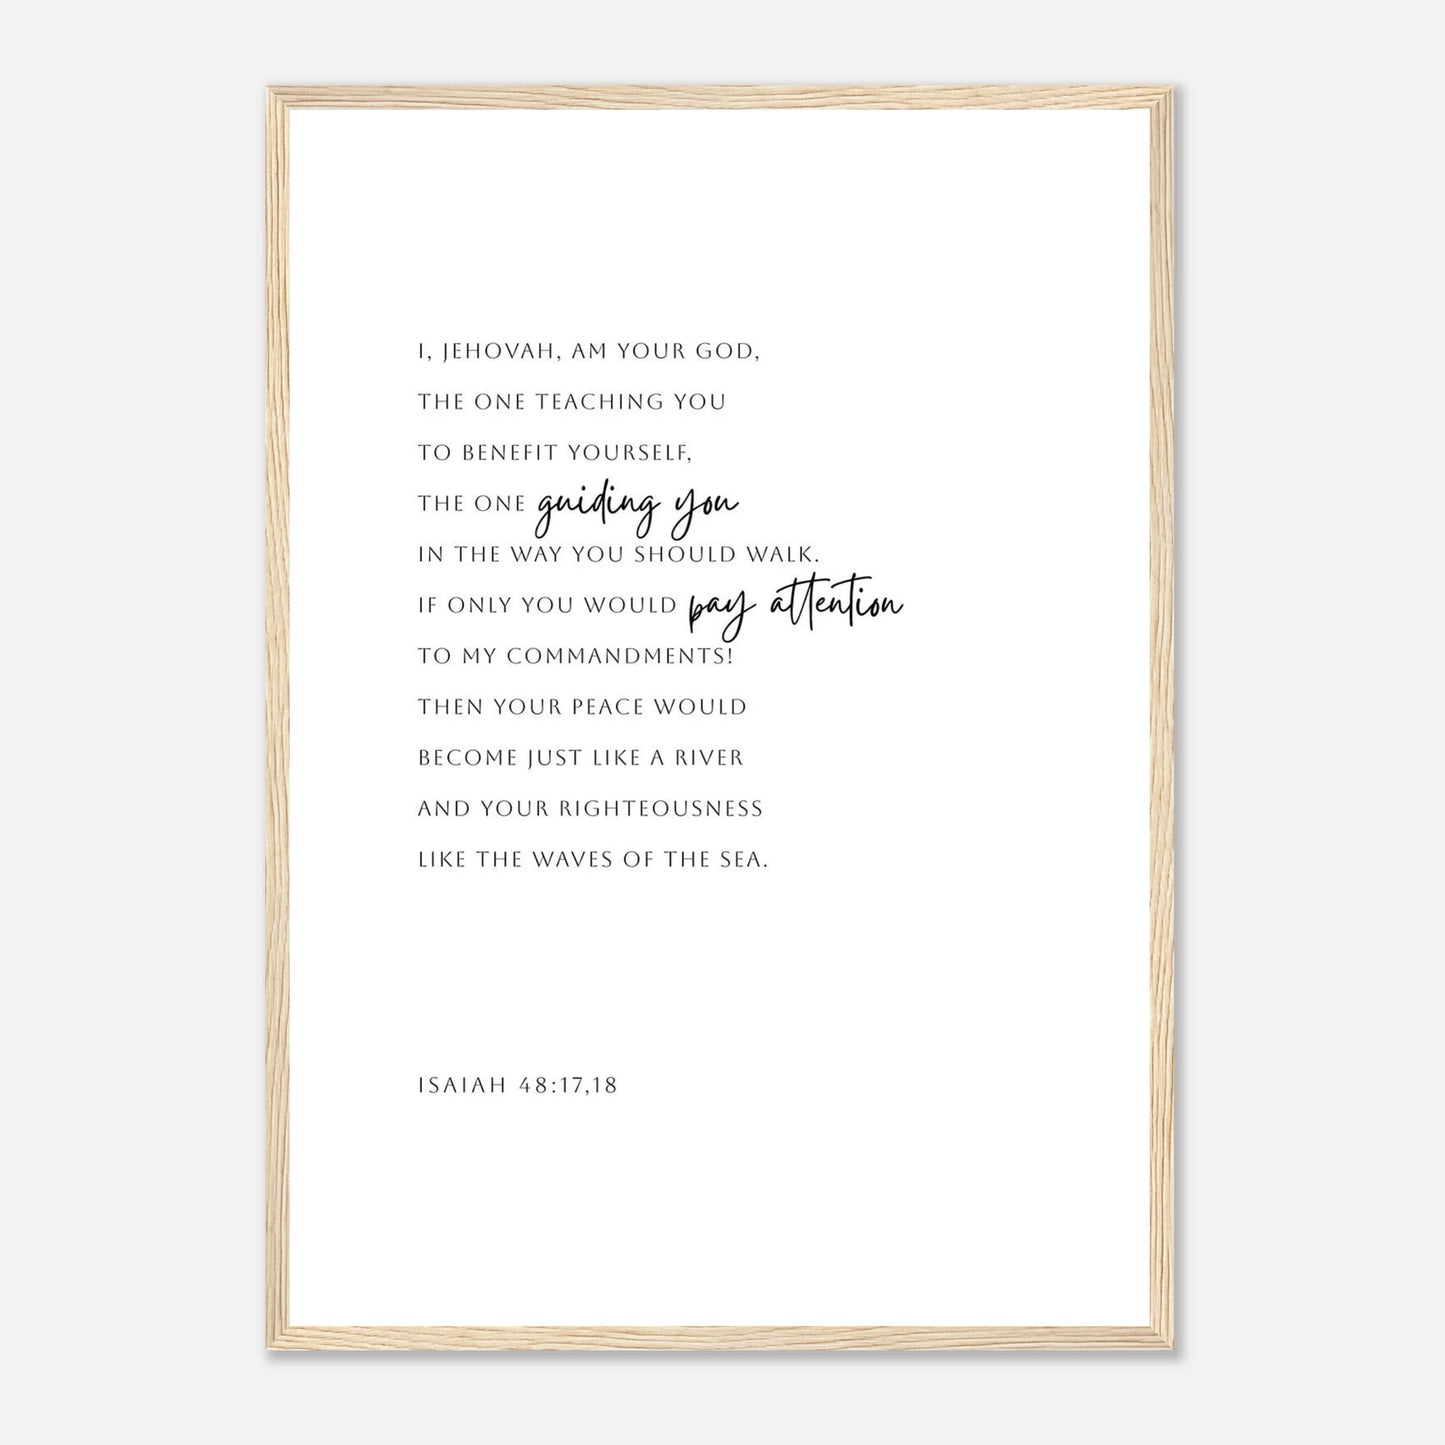 I, JEHOVAH, AM YOUR GOD,
THE ONE TEACHING YOU
TO BENEFIT YOURSELF,
THE ONE guiding you
IN THE WAY YOU SHOULD WALK.
IF ONLY YOU WOULD pay attention
TO MY COMMANDMENTS!
THEN YOUR PEACE WOULD
BECOME JUST LIKE A RIVER
AND YOUR RIGHTEOUSNESS
LIKE THE WAVES OF THE SEA.
ISAIAH 48:17,18